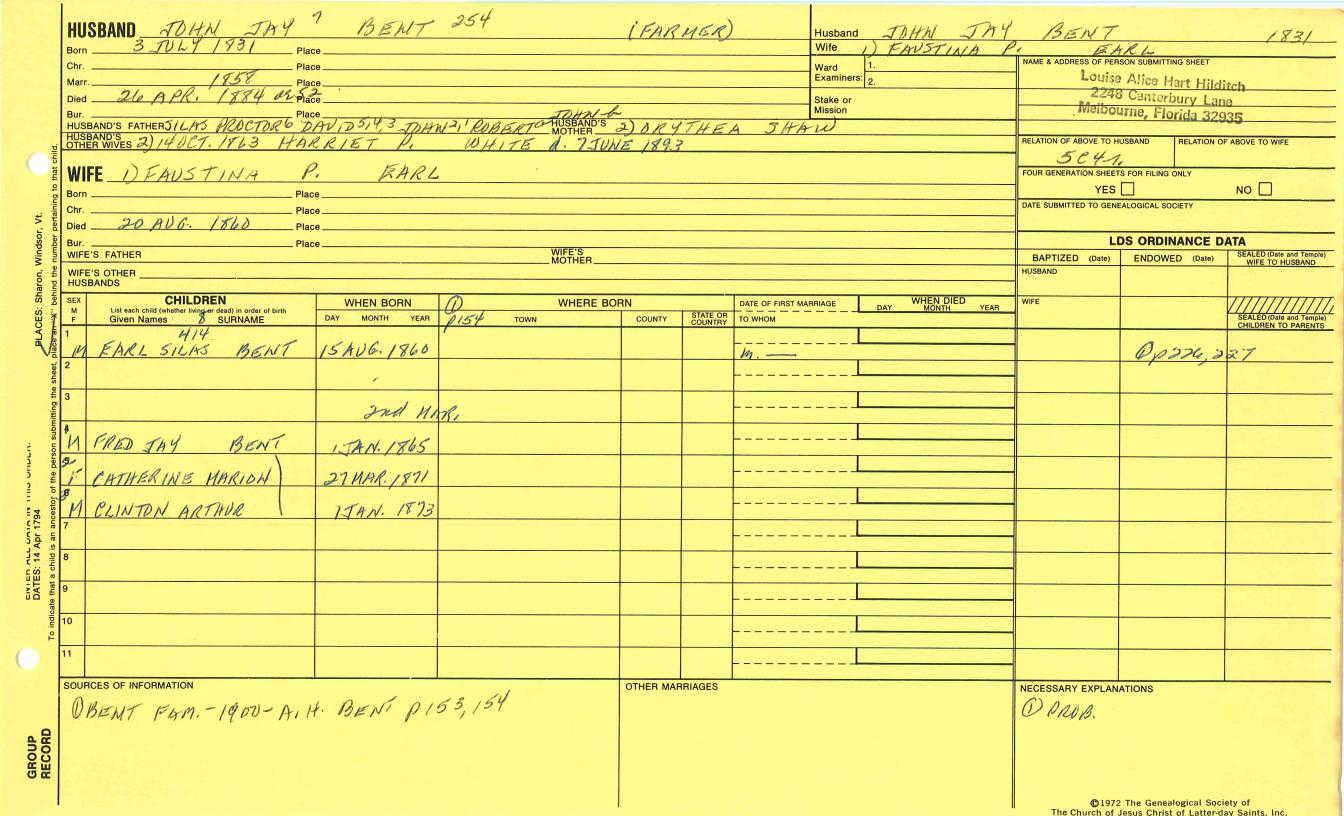 HUSBAND JOHN JAY 7 BENT 254 (FARMER)
Born 3 JULY 1831 Place
Chr. Place
Marr. 1858 Place
Died 26 APR. 1884 at 52 Place
Bur. Place
HUSBAND'S FATHER SILAS PROCTOR 6 DAVID 5,4,3 JOHN 2,1 ROBERT JOHN HUSBAND'S MOTHER 2) ORYTHEA SHAW
HUSBAND'S OTHER WIVES 2) 14 OCT. 1863 HARRIET P. WHITE d. 7 JUNE 1893
Husband JOHN JAY BENT 1831
Wife 1) FAUSTINA P. EARL
Ward Examiners: 1.
2.
Stake or Mission
NAME & ADDRESS OF PERSON SUBMITTING SHEET
Louise Alice Hart Hilditch
2248 Canterbury Lane
Melbourne, Florida 32935
RELATION OF ABOVE TO HUSBAND
RELATION OF ABOVE TO WIFE
5C4r
FOUR GENERATION SHEETS FOR FILING ONLY
YES NO
DATE SUBMITTED TO GENEALOGICAL SOCIETY
WIFE 1) FAUSTINA P. EARL
Born Place
Chr. Place
Died 20 AUG. 1860 Place
Bur. Place
WIFE'S FATHER WIFE'S MOTHER
WIFE'S OTHER HUSBANDS
LDS ORDINANCE DATA
BAPTIZED (Date) ENDOWED (Date) SEALED (Date and Temple) WIFE TO HUSBAND
HUSBAND
WIFE
SEALED (Date and Temple) CHILDREN TO PARENTS
SEX M F
CHILDREN
List each child (whether living or dead) in order of birth
Given Names 8 SURNAME
WHEN BORN
DAY MONTH YEAR
① p154
WHERE BORN
TOWN COUNTY STATE OR COUNTRY
DATE OF FIRST MARRIAGE
TO WHOM
WHEN DIED
DAY MONTH YEAR
1 414
M EARL SILAS BENT 15 AUG. 1860 m. — ① p226, 227
2
3 2nd MAR.
4
M FRED JAY BENT 1 JAN. 1865
5
F CATHERINE MARION 27 MAR. 1871
6
M CLINTON ARTHUR 1 JAN. 1873
7
8
9
10
11
SOURCES OF INFORMATION
① BENT FAM. - 1900 - A.H. BENT p 153, 154
OTHER MARRIAGES
NECESSARY EXPLANATIONS
① PROB.
GROUP RECORD
DATES: 14 Apr 1794
PLACES: Sharon, Windsor, Vt.
To indicate that a child is an ancestor of the person submitting the sheet, place an "X" behind the number pertaining to that child.
©1972 The Genealogical Society of
The Church of Jesus Christ of Latter-day Saints, Inc.